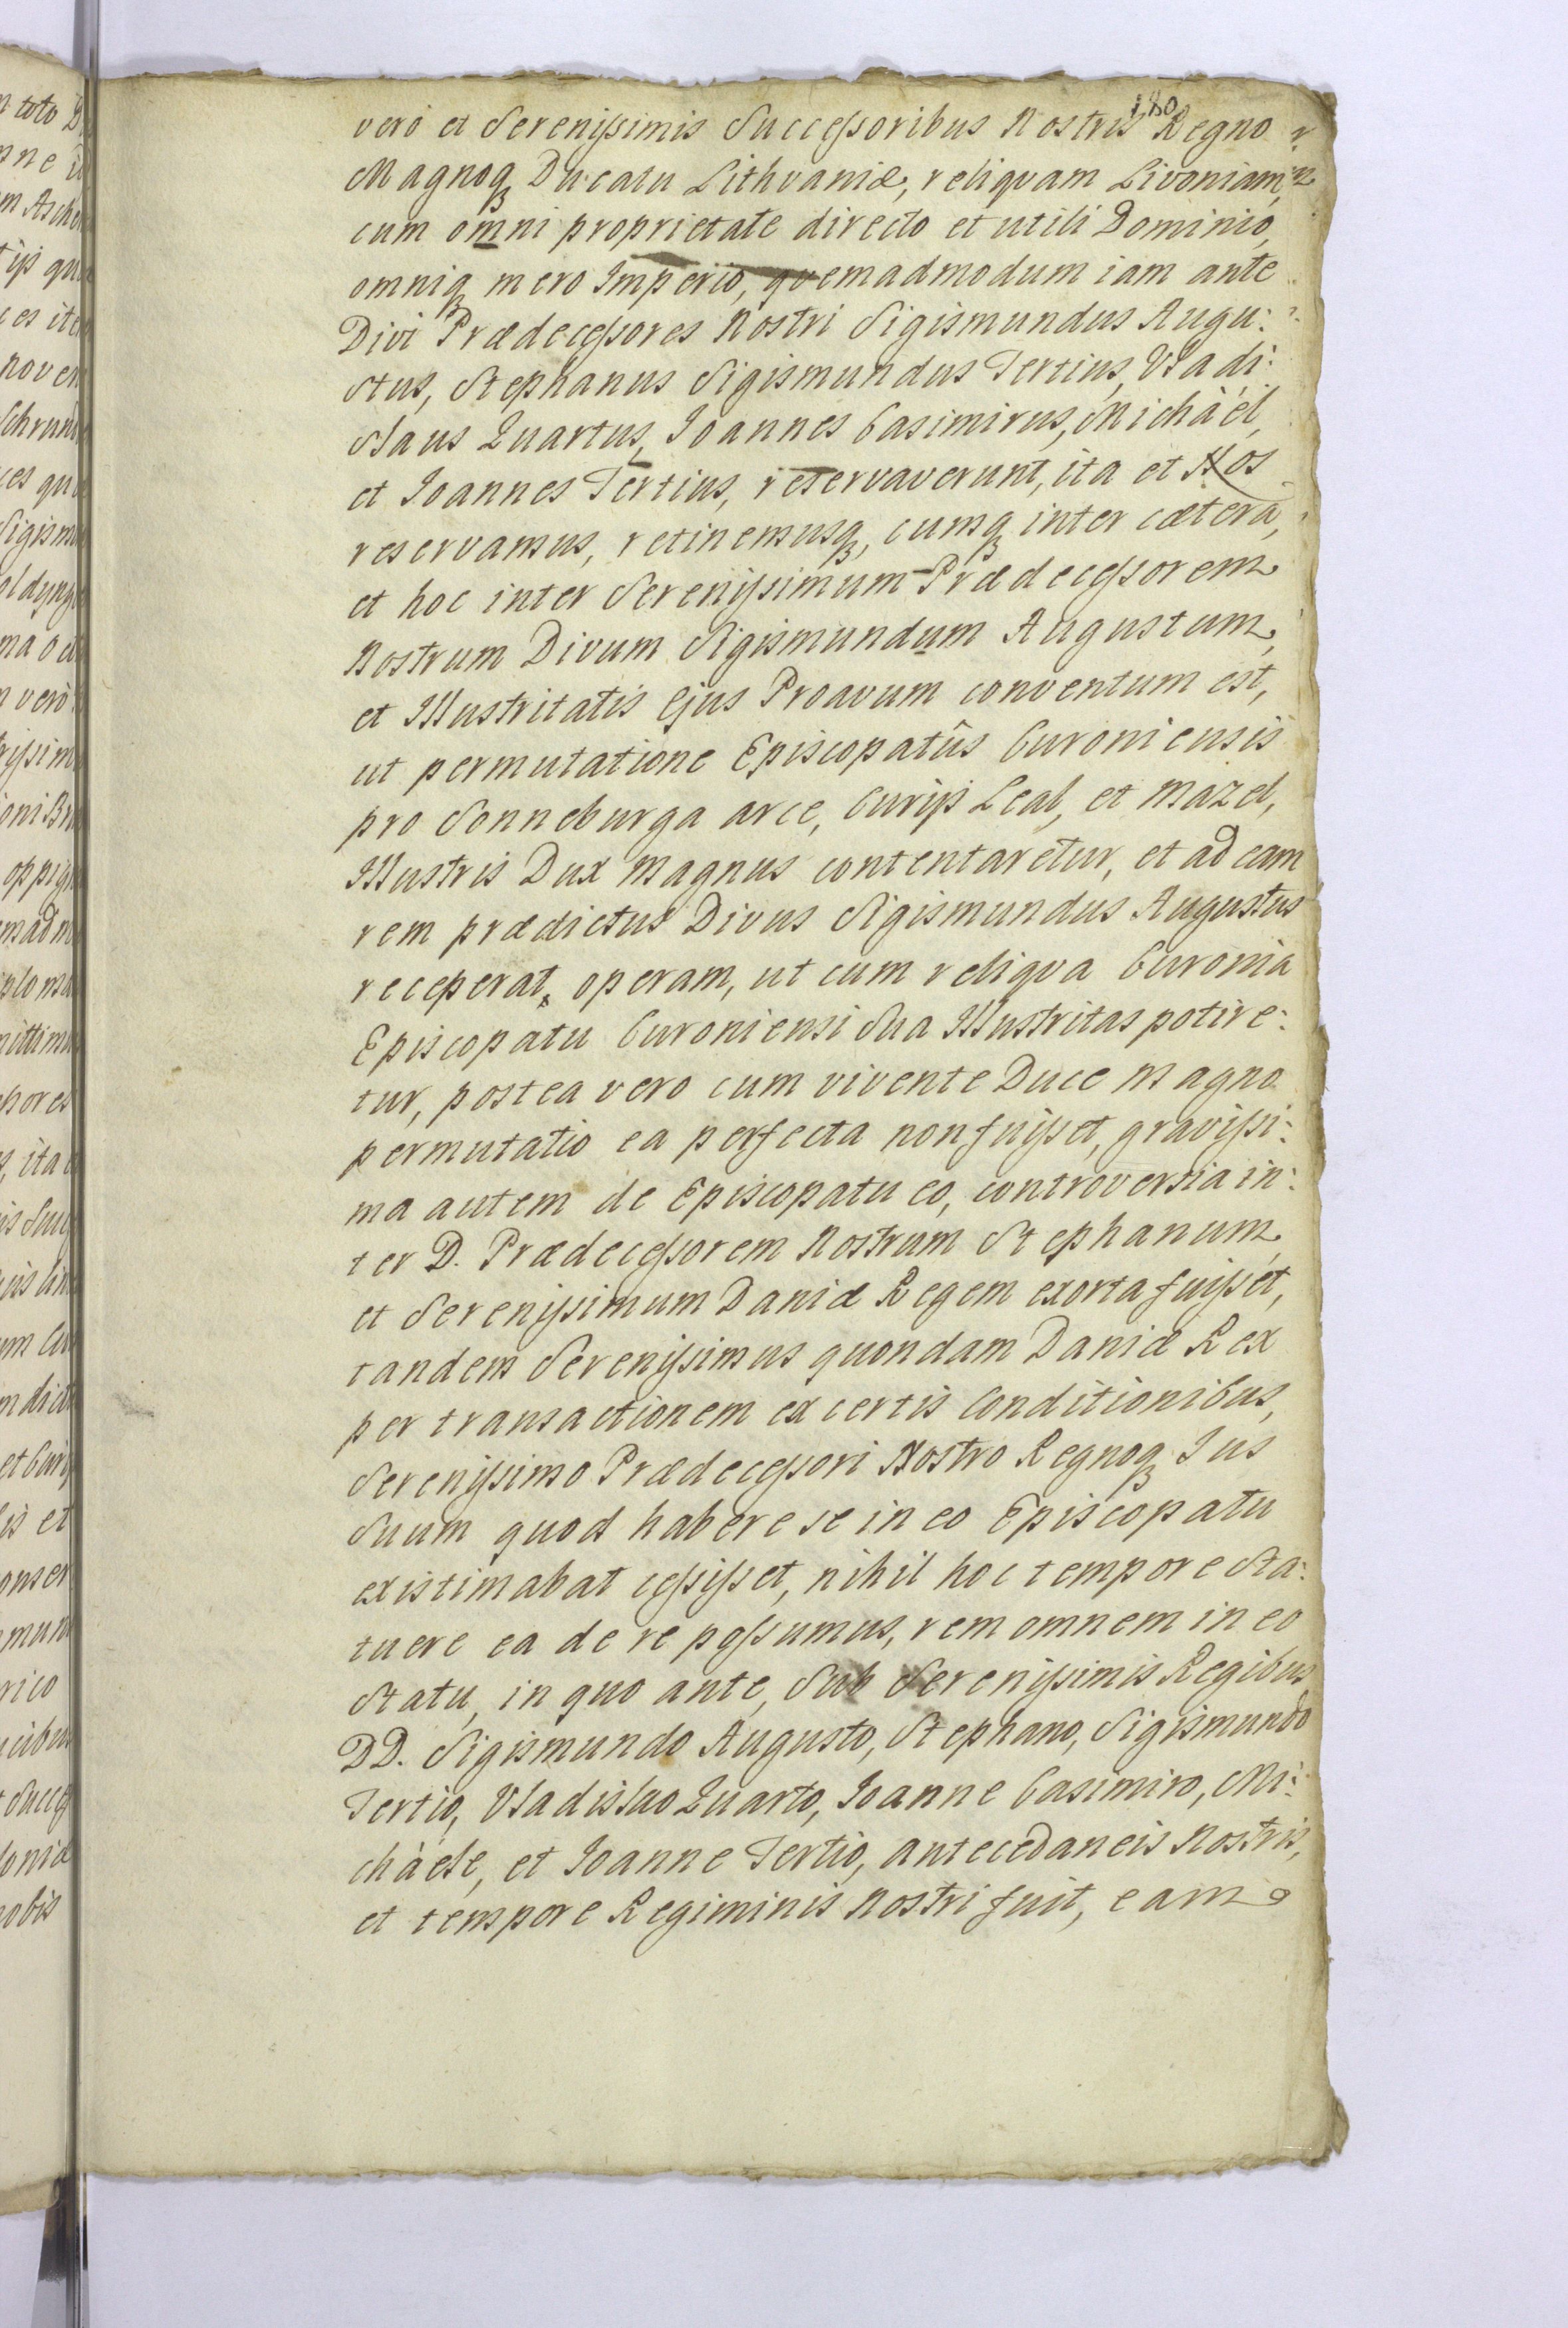 180
vero et Serenissimis Successoribus Nostris Regno
Magnoq3 Ducatu Lithvaniæ, reliqvam Livoniam,
cum omni proprietate directo et utili Dominio,
omniq3 mero Imperio, qvemadmodum iam ante
Divi Prædecessores Nostri Sigismundus Augu:
stus, Stephanus Sigismundus Tertius, Vladi:
slaus Quartus, Joannes Casimirus, Michàél,
et Joannes Tertius, reservaverunt, ita et Nos
reservamus, retinemusq3, cumq3 inter cætera,
et hoc inter Serenissimum Prædecessorem
Nostrum Divum Sigismundum Augustum,
et Illustritatis Ejus Proavum conventum est,
ut permutatione Episcopatûs Curoniensis
pro Sonneburga arce, Curijs Leal, et Mazel,
Illustris Dux Magnus contentaretur, et ad eam
rem prædictus Divus Sigismundus Augustus
receperat, operam, ut cum reliqva Curonia
Episcopatu Curoniensi Sua Illustritas potire:
tur, postea vero cum vivente Duce Magno
permutatio ea perfecta non fuisset, gravissi:
ma autem de Episcopatu eo, controversia in:
ter D. Prædecessorem Nostrum Stephanum,
et Serenissimum Daniæ Regem exorta fuisset,
tandem Serenissimus quondam Daniæ Rex
per transactionem ex certis Conditionibus,
Serenissimo Prædecessori Nostro Regnoq3 Jus
Suum quod habere se in eo Episcopatu
existimabat cessisset, nihil hoc tempore sta:
tuere ea de re possumus, rem omnem in eo
Statu, in quo ante, Sub Serenissimis Regibus
DD. Sigismundo Augusto, Stephano, Sigismundo
Tertio, Vladislao Quarto, Joanne Casimiro, Mi:
chàele, et Joanne Tertio, antecedaneis Nostris,
et tempore Regiminis Nostri fuit, eam